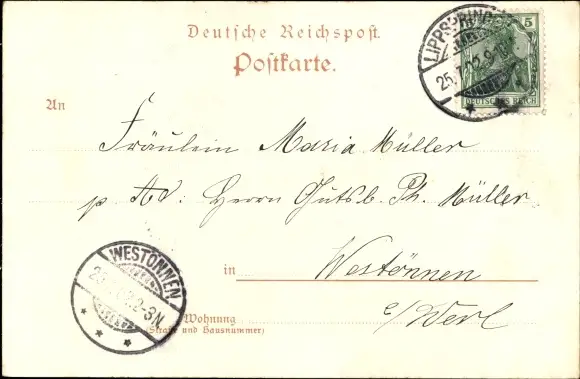 Deutsche Reichspost.
Postkarte.
LIPPSPRINGE
25.7.02.9-
5
DEUTSCHES REICH
An
Fräulein Maria Müller
p. Ad: Herrn Gutsb. Ph. Müller
WESTÖNNEN
2-3N
in Westönnen
c/Werl
Wohnung
(Straße und Hausnummer)